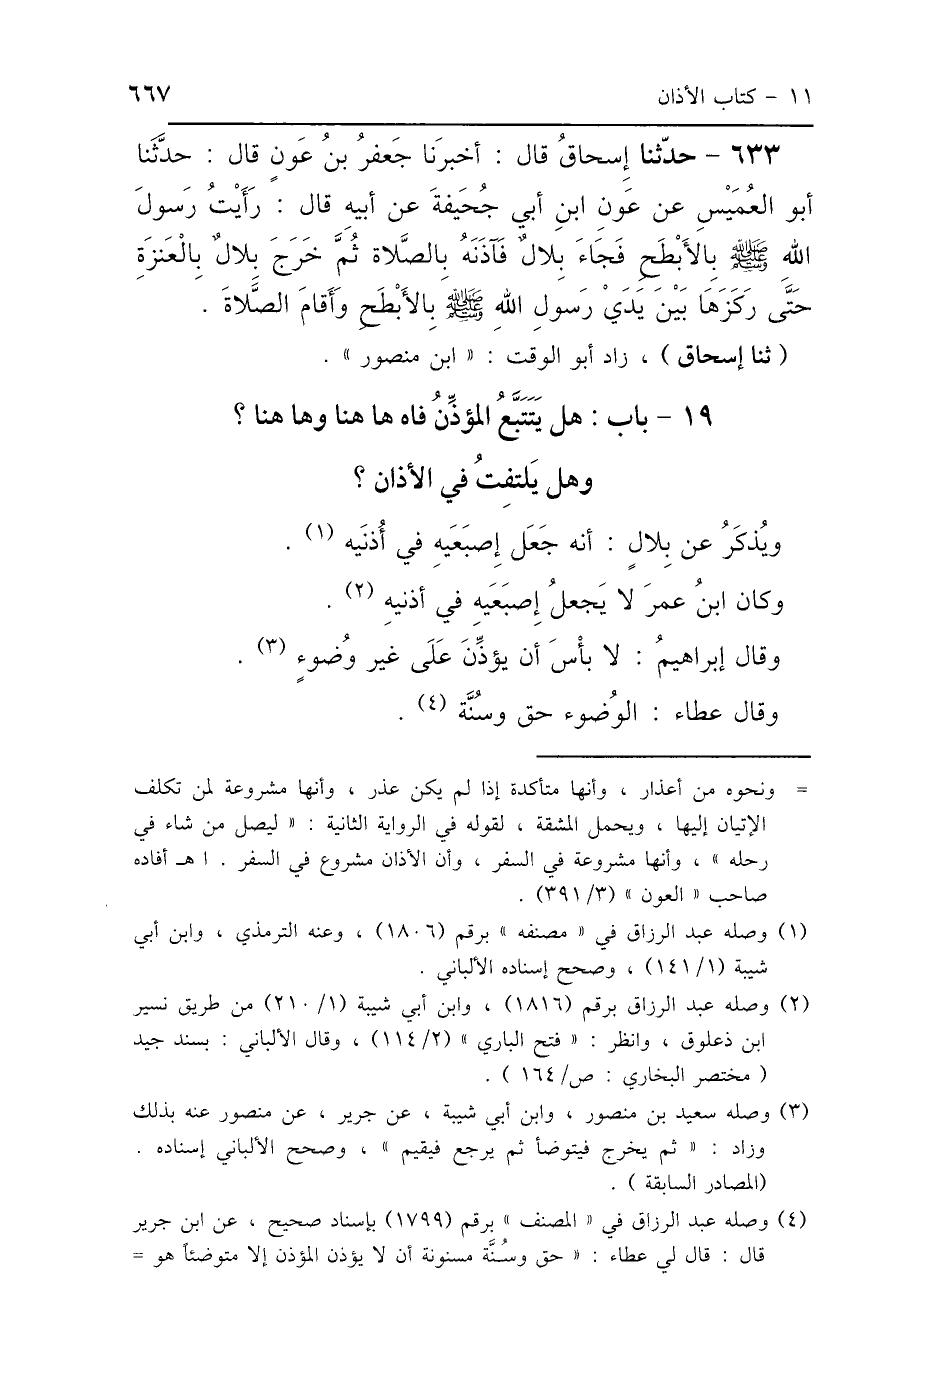 ١١ - كتاب الأذان ٦٦٧
٦٣٣ - حدّثنا إسحاقُ قال : أخبرَنا جَعفرُ بنُ عَونٍ قال : حدَّثَنا
أبو العُمَيْسِ عن عَونِ ابنِ أبي جُحَيفةَ عن أبيهِ قال : رَأَيْتُ رَسولَ
الله ﷺ بِالأَبْطَحِ فَجَاءَ بِلالٌ فَآذَنَهُ بِالصَّلاة ثُمَّ خَرَجَ بِلالٌ بِالْعَنزَةِ
حَتَّى رَكَزَهَا بَيْنَ يَدَيْ رَسولِ الله ﷺ بِالأَبْطَحِ وأَقامَ الصَّلاةَ .
( ثنا إسحاق ) ، زاد أبو الوقت : « ابن منصور » .
١٩ - باب : هل يَتَتَبَّعُ المؤذِّنُ فاه ها هنا وها هنا ؟
وهل يَلتفِتُ في الأذان ؟
ويُذكَرُ عن بِلالٍ : أنه جَعَل إِصبَعَيهِ في أُذنَيه (١) .
وكان ابنُ عمرَ لا يَجعلُ إِصبَعَيهِ في أذنيهِ (٢) .
وقال إبراهيمُ : لا بأْسَ أن يؤذِّنَ عَلَى غير وُضوءٍ (٣) .
وقال عطاء : الوُضوء حق وسُنَّة (٤) .
= ونحوه من أعذار ، وأنها متأكدة إذا لم يكن عذر ، وأنها مشروعة لمن تكلف
الإتيان إليها ، ويحمل المشقة ، لقوله في الرواية الثانية : « ليصل من شاء في
رحله » ، وأنها مشروعة في السفر ، وأن الأذان مشروع في السفر . ا هـ أفاده
صاحب « العون » (٣٩١/٣) .
(١) وصله عبد الرزاق في « مصنفه » برقم (١٨٠٦) ، وعنه الترمذي ، وابن أبي
شيبة (١٤١/١) ، وصحح إسناده الألباني .
(٢) وصله عبد الرزاق برقم (١٨١٦) ، وابن أبي شيبة (٢١٠/١) من طريق نسير
ابن ذعلوق ، وانظر : « فتح الباري » (١١٤/٢) ، وقال الألباني : بسند جيد
( مختصر البخاري : ص/١٦٤ ) .
(٣) وصله سعيد بن منصور ، وابن أبي شيبة ، عن جرير ، عن منصور عنه بذلك
وزاد : « ثم يخرج فيتوضأ ثم يرجع فيقيم » ، وصحح الألباني إسناده .
(المصادر السابقة ) .
(٤) وصله عبد الرزاق في « المصنف » برقم (١٧٩٩) بإسناد صحيح ، عن ابن جرير
قال : قال لي عطاء : « حق وسُنَّة مسنونة أن لا يؤذن المؤذن إلا متوضئاً هو =